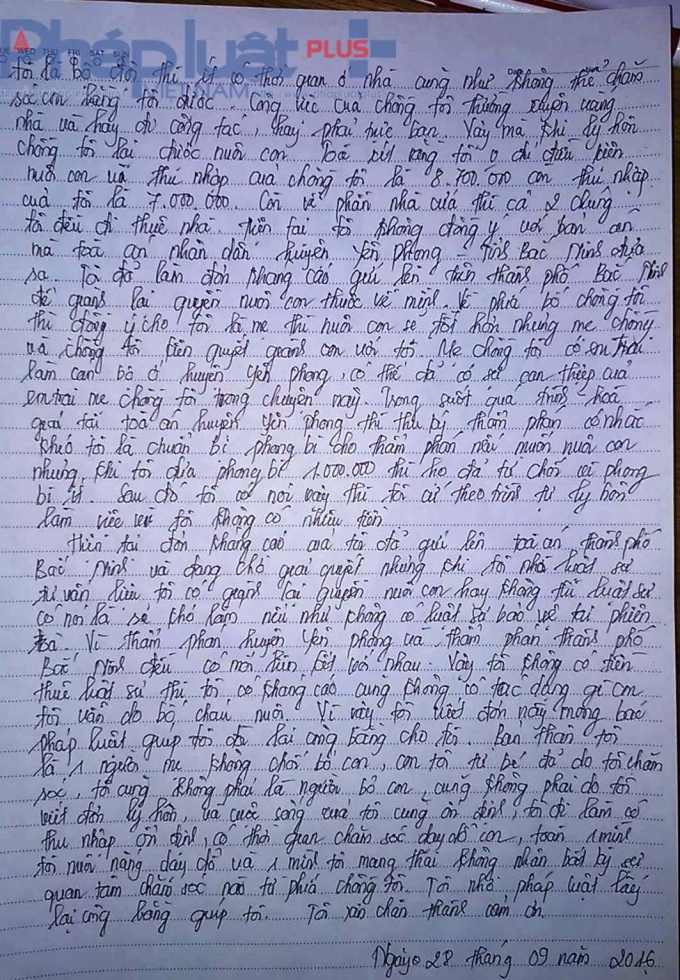 Pháp luật PLUS
VIETNAM
TUE WED THU FRI SAT SUN
tôi là bộ đội thì ít có thời gian ở nhà cũng như không thể chăm
sóc con bằng tôi được. Công việc của chồng tôi thường xuyên vắng
nhà và hay đi công tác, hay phải trực ban. Vậy mà khi ly hôn
chồng tôi lại được nuôi con. Toà xét rằng tôi o đủ điều kiện
nuôi con và thu nhập của chồng tôi là 8.700.000 còn thu nhập
của tôi là 7.000.000. Còn về phần nhà cửa thì cả 2 chúng
tôi đều đi thuê nhà. Hiện tại tôi không đồng ý với bản án
mà toà án nhân dân huyện Yên Phong - tỉnh Bắc Ninh đưa
ra. Tôi đã làm đơn kháng cáo gửi lên trên thành phố Bắc Ninh
để giành lại quyền nuôi con thuộc về mình. Về phía bố chồng tôi
thì đồng ý cho tôi là mẹ thì nuôi con sẽ tốt hơn nhưng mẹ chồng
và chồng tôi kiên quyết giành con với tôi. Mẹ chồng tôi có em trai
làm cán bộ ở huyện Yên phong, có thể đã có sự can thiệp của
em trai mẹ chồng tôi trong chuyện này. Trong suốt quá trình hoà
giải tại toà án huyện Yên phong thì thư ký, thẩm phán có nhắc
khéo tôi là chuẩn bị phong bì cho thẩm phán nếu muốn nuôi con
nhưng khi tôi đưa phong bì 1.000.000 thì họ đã từ chối vì phong
bì ít. Sau đó tôi có nói vậy thì tôi cứ theo trình tự ly hôn
làm việc vì tôi không có nhiều tiền
Hiện tại đơn kháng cáo của tôi đã gửi lên toà án thành phố
Bắc Ninh và đang chờ giải quyết nhưng khi tôi nhờ luật sư
tư vấn liệu tôi có giành lại quyền nuôi con hay không thì luật sư
có nói là sẽ khó lắm nếu như không có luật sư bảo vệ tại phiên
toà. Vì thẩm phán huyện Yên phong và thẩm phán thành phố
Bắc Ninh đều có mối liên kết với nhau. Vậy tôi không có tiền
thuê luật sư thì tôi có kháng cáo cũng không có tác dụng gì con
tôi vẫn do bố cháu nuôi. Vì vậy tôi viết đơn này mong báo
pháp luật giúp tôi đòi lại công bằng cho tôi. Bản thân tôi
là 1 người mẹ không chối bỏ con, con tôi từ bé đã do tôi chăm
sóc, tôi cũng không phải là người bỏ con, cũng không phải do tôi
viết đơn ly hôn, và cuộc sống của tôi cũng ổn định, tôi đi làm có
thu nhập ổn định, có thời gian chăm sóc dạy dỗ con, toàn 1 mình
tôi nuôi nấng dạy dỗ và 1 mình tôi mang thai không nhận bất kỳ sự
quan tâm chăm sóc nào từ phía chồng tôi. Tôi nhờ pháp luật lấy
lại công bằng giúp tôi. Tôi xin chân thành cảm ơn.
Ngày 28 tháng 09 năm 2016